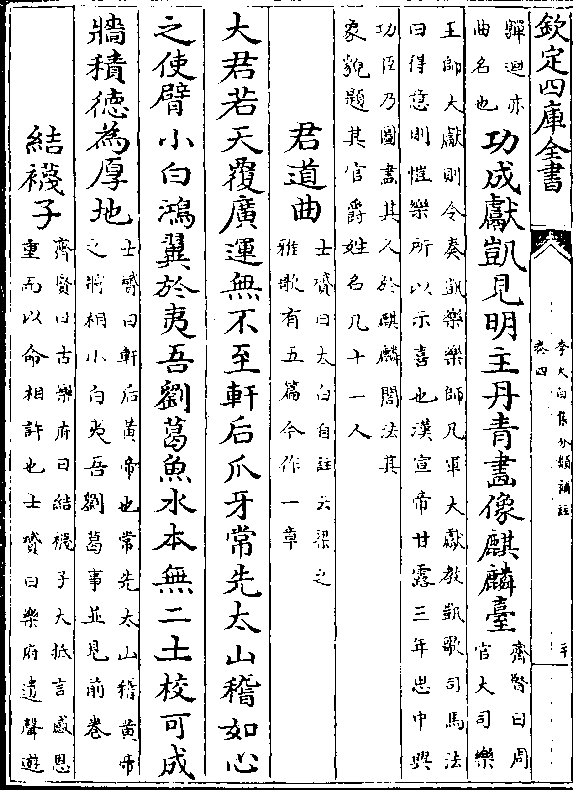 欽定四庫全書
李太白集分類補註
卷四
三十
驒迴亦
曲名也
功成獻凱見明主丹青畫像麒麟臺
齊賢曰周
官大司樂
王師大獻則令奏凱樂樂師凡軍大獻教凱歌司馬法
曰得意則愷樂所以示喜也漢宣帝甘露三年思中興
功臣乃圖畫其人於麒麟閣法其
象貌題其官爵姓名凡十一人
君道曲
士贇曰太白自註云梁之
雅歌有五篇今作一章
大君若天覆廣運無不至軒后爪牙常先太山稽如心
之使臂小白鴻翼於夷吾劉葛魚水本無二土校可成
牆積德為厚地
士贇曰軒后黄帝也常先太山稽黄帝
之將相小白夷吾劉葛事並見前卷
結襪子
齊賢曰古樂府曰結襪子大抵言感恩
重而以命相許也士贇曰樂府遺聲遊